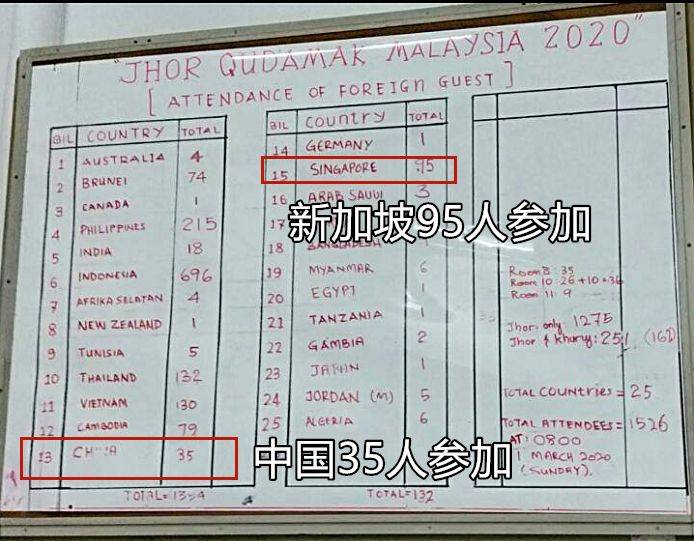 "JHOR QUDAMAK MALAYSIA 2020"
[ ATTENDANCE OF FOREIGN GUEST ]
BIL COUNTRY TOTAL
1 AUSTRALIA 4
2 BRUNEI 74
3 CANADA 1
4 PHILIPPINES 215
5 INDIA 18
6 INDONESIA 696
7 AFRIKA SELATAN 4
8 NEW ZEALAND 1
9 TUNISIA 5
10 THAILAND 132
11 VIETNAM 130
12 CAMBODIA 79
13 CHINA 35
TOTAL=
BIL COUNTRY TOTAL
14 GERMANY 1
15 SINGAPORE 95
16 ARAB SAUDI 3
17
18 BANGLADESH
19 MYANMAR 6
20 EGYPT 1
21 TANZANIA 1
22 GAMBIA 2
23 1
24 JORDAN (M) 5
25 ALGERIA 6
TOTAL=132
新加坡95人参加
中国35人参加
Room 8: 35
Room 10: 26+10=36
Room 11: 9
Jhor: only 1275
Jhor & khuruj: 251
TOTAL COUNTRIES = 25
TOTAL ATTENDEES = 1526
AT: 0800
1 MARCH 2020
(SUNDAY).